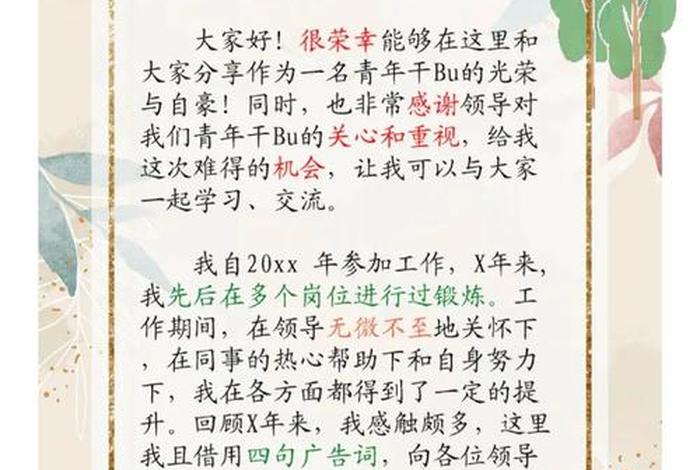 大家好！很荣幸能够在这里和
大家分享作为一名青年干Bu的光荣
与自豪！同时，也非常感谢领导对
我们青年干Bu的关心和重视，给我
这次难得的机会，让我可以与大家
一起学习、交流。
我自20xx 年参加工作，X年来，
我先后在多个岗位进行过锻炼。工
作期间，在领导无微不至地关怀下
，在同事的热心帮助下和自身努力
下，我在各方面都得到了一定的提
升。回顾X年来，我感触颇多，这里
我且借用四句广告词，向各位领导